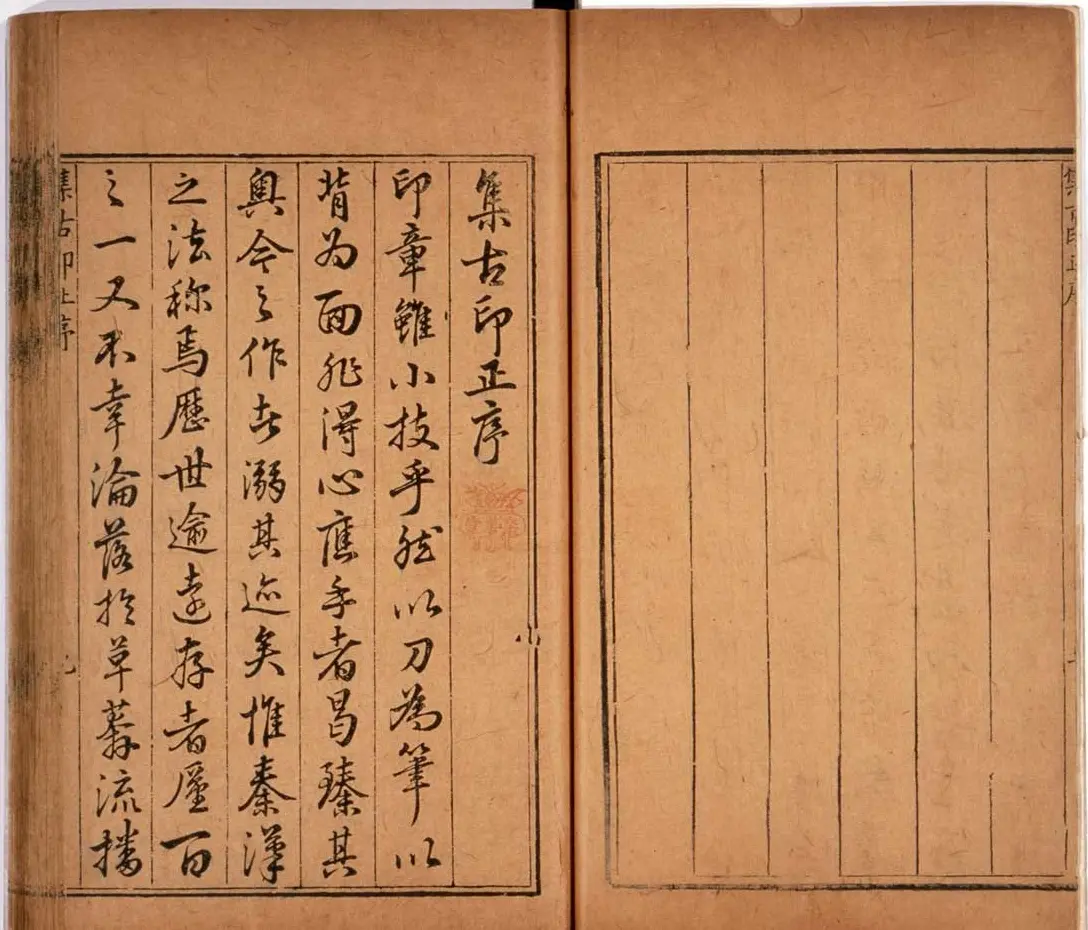 集古印正序
印章雖小技乎然以刀為筆以
背为面非得心應手者曷臻其
奧今之作者溺其迹矣惟秦漢
之法称焉歷世逾遠存者厪百
之一又不幸淪落於草莽流播
集古印正序
集古印正序